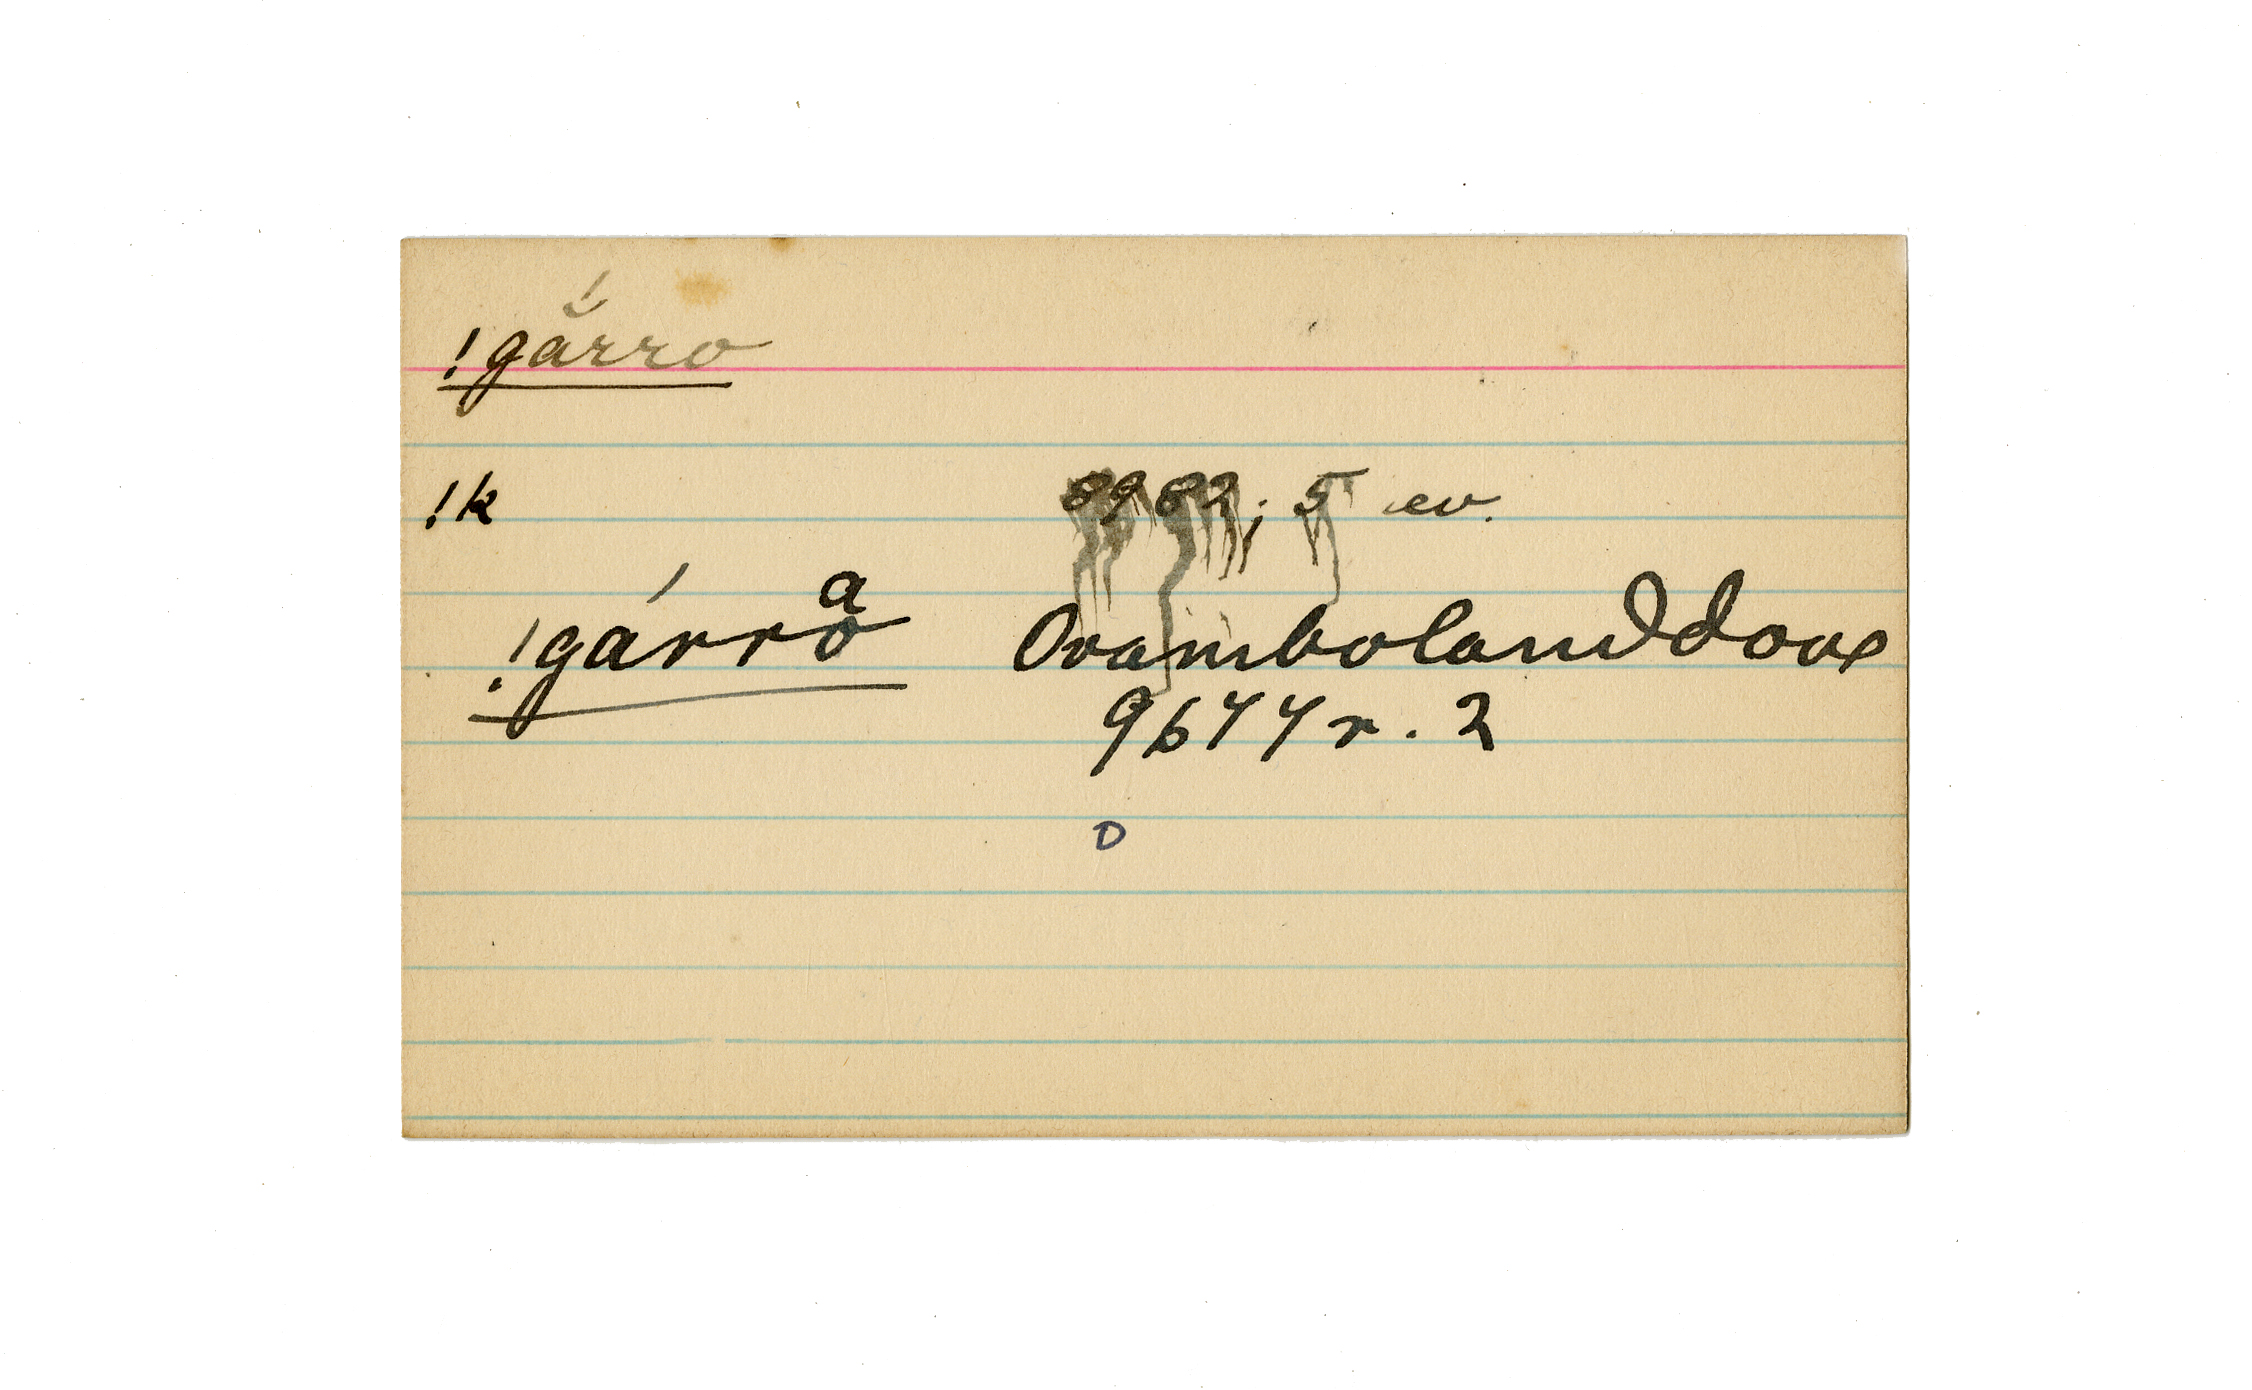 !gắrro
!k 8982; 5 ev.
a
!gárro Ovamboland dove
9677 r. 2
D